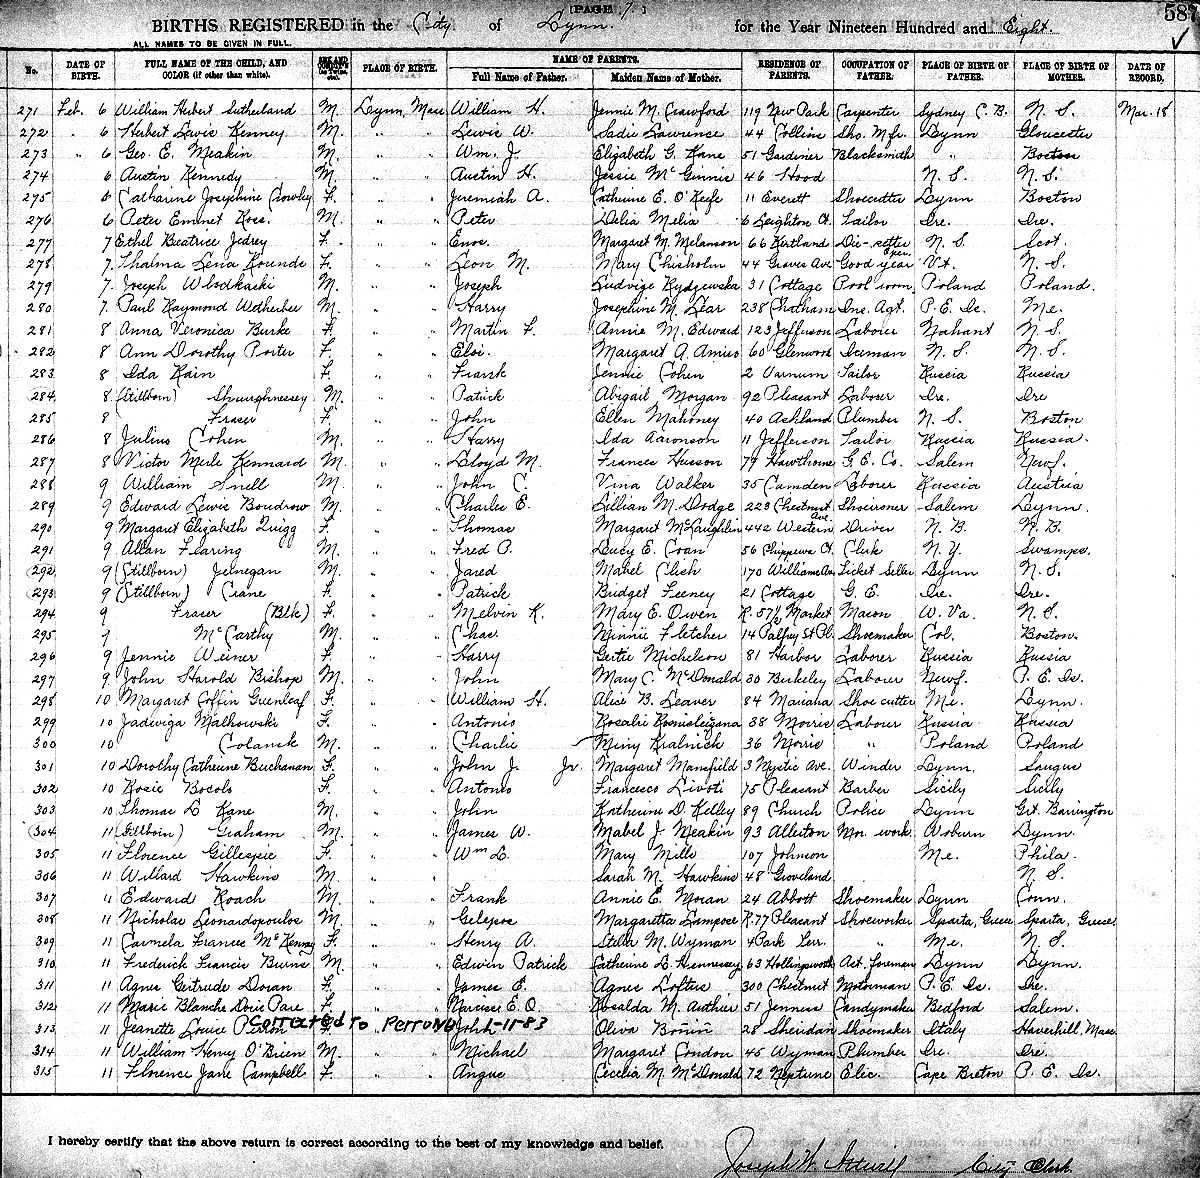 [PAGE 7.]
58
BIRTHS REGISTERED in the City of Lynn. for the Year Nineteen Hundred and Eight.
ALL NAMES TO BE GIVEN IN FULL.
No. DATE OF BIRTH. FULL NAME OF THE CHILD, AND COLOR (if other than white). SEX AND CONDIT'N (as Twins, etc.) PLACE OF BIRTH. NAME OF PARENTS. Full Name of Father. Maiden Name of Mother. RESIDENCE OF PARENTS. OCCUPATION OF FATHER. PLACE OF BIRTH OF FATHER. PLACE OF BIRTH OF MOTHER. DATE OF RECORD.
271 Feb. 6 William Herbert Sutherland M. Lynn, Mass William H. Jennie M. Crawford 119 New Park Carpenter Sydney C. B. N. S. Mar. 18
272 " 6 Herbert Lewis Kenney M. " " Lewis W. Sadie Lawrence 44 Collins Sho. Mfr. Lynn Gloucester
273 " 6 Geo. E. Meakin M. " " Wm. J. Elizabeth G. Kane 51 Gardiner Blacksmith " Boston
274 6 Austin Kennedy M. " " Austin H. Jessie McGinnis 46 Hood N. S. N. S.
275 6 Catharine Josephine Crowley F. " " Jeremiah A. Catherine E. O'Keefe 11 Everett Shoecutter Lynn Boston
276 6 Peter Emmet Ross. M. " " Peter Delia Melia 6 Leighton Ct. Tailor Ire. Ire.
277 7 Ethel Beatrice Jedrey F. " " Enos. Margaret M. Melanson 66 Kirtland Die-setter N. S. Scot.
278 7. Thalma Lena Rounds F. " " Leon M. Mary Chisholm 44 Graves Ave Good year Oper. Vt. N. S.
279 7. Joseph M. " " Joseph Ludvige 31 Cottage Pool room Poland Poland.
280 7. Paul Raymond Wetherbee M. " " Harry Josephine M. Lear 238 Chatham Ins. Agt. P. E. Is. Me.
281 8 Anna Veronica Burke F. " " Martin F. Annie M. Edward 123 Jefferson Laborer Nahant N. S.
282 8 Ann Dorothy Porter F. " " Eloi. Margaret A. Amiro 60 Glenwood Iceman N. S. N. S.
283 8 Ida Kain F. " " Frank Jennie Cohen 2 Varnum Tailor Russia Russia
284 8 (Stillborn) Shaughnessey M. " " Patrick Abigail Morgan 92 Pleasant Laborer Ire. Ire
285 8 Fraser F. " " John Ellen Mahoney 40 Ashland Plumber N. S. Boston
286 8 Julius Cohen M. " " Harry Ida Aaronson 11 Jefferson Tailor Russia Russia.
287 8 Victor Merle Kennard M. " " Lloyd M. Frances Husson 79 Hawthorne G. E. Co. Salem Newf.
288 9 William Snell M. " " John C. Vina Walker 35 Camden Laborer Russia Austria
289 9 Edward Lewis Boudrow M. " " Charles E. Lillian M. Dodge 223 Chestnut Shoeironer Salem Lynn.
290 9 Margaret Elizabeth Quigg F. " " Thomas Margaret McLaughlin 442 Western Ave Driver N. B. N. B.
291 9 Allan Fearing M. " " Fred P. Lucy E. Coan 56 Chippewa Ct. Clerk N. Y. Swamps.
292 9 (Stillborn) Jernegan M. " " Jared Mabel Clish 170 Williams Av Ticket Seller Lynn N. S.
293 9 (Stillborn) Crane F. " " Patrick Bridget Feeney 21 Cottage G. E. Ire. Ire.
294 9 Fraser (Blk) F. " " Melvin K. Mary E. Owen R. 57½ Market Mason W. Va. N. S.
295 9 McCarthy M. " " Chas. Minnie Fletcher 14 Palfrey St Pl. Shoemaker Col. Boston.
296 9 Jennie Weiner F. " " Harry Gertie Michelson 81 Harbor Laborer Russia Russia
297 9 John Harold Bishop M. " " John Mary C. McDonald 30 Berkeley Labour Newf. P. E. Is.
298 10 Margaret Coffin Greenleaf F. " " William H. Alice B. Leaver 84 Mariana Shoe cutter Me. Lynn.
299 10 Jadwiga Malkowski F. " " Antonio Rosalie 38 Morris Labourer Russia Russia
300 10 Colanek M. " " Charlie Miny Kralnick 36 Morris " Poland Poland
301 10 Dorothy Catherine Buchanan F. " " John J. Jr. Margaret Mansfield 3 Mystic Ave. Winder Lynn. Saugus
302 10 Rosie Bocols F. " " Antonio Francesco Livoti 75 Pleasant Barber Sicily Sicily
303 10 Thomas L Kane M. " " John Katherine D. Kelley 89 Church Police Lynn Grt. Barrington
304 11 (Stillborn) Graham M. " " James W. Mabel J. Meakin 93 Allerton Mor. work. Woburn Lynn.
305 11 Florence Gillespie F. " " Wm L. Mary Mills 107 Johnson Me. Phila.
306 11 Willard Hawkins M. " Sarah M. Hawkins 48 Groveland N. S.
307 11 Edward Roach M. " " Frank Annie E. Moran 24 Abbott Shoemaker Lynn Conn.
308 11 Nicholas Leonardopoulos M. " " Gelepos Margaretta Lampose R. 77 Pleasant Shoeworker Sparta, Greece Sparta, Greece.
309 11 Carmela Frances McKenney F. " " Henry A. Stella M. Wyman 4 Park Terr. " Me. N. S.
310 11 Frederick Francis Burns M. " " Edwin Patrick Catherine L. Hennessey 63 Hollingsworth Act. foreman Lynn Lynn.
311 11 Agnes Gertrude Doran F. " " James E. Agnes Loftus 300 Chestnut Motorman P. E. Is. Ire.
312 11 Marie Blanche Doris Pare F. " " Narcisse E. O. Rosalda M. Authier 51 Jenness Candymaker Bedford Salem.
Corrected to Perrono 1-11-83
313 11 Jeanette Louise John Oliva Bonin 28 Sheridan Shoemaker Italy Haverhill, Mass.
314 11 William Henry O'Brien M. " " Michael Margaret Condon 45 Wyman Plumber Ire. Ire.
315 11 Florence Jane Campbell F. " " Angus Cecelia M. McDonald 72 Neptune Elec. Cape Breton P. E. Is.
I hereby certify that the above return is correct according to the best of my knowledge and belief.
Joseph W. Attwill City Clerk.